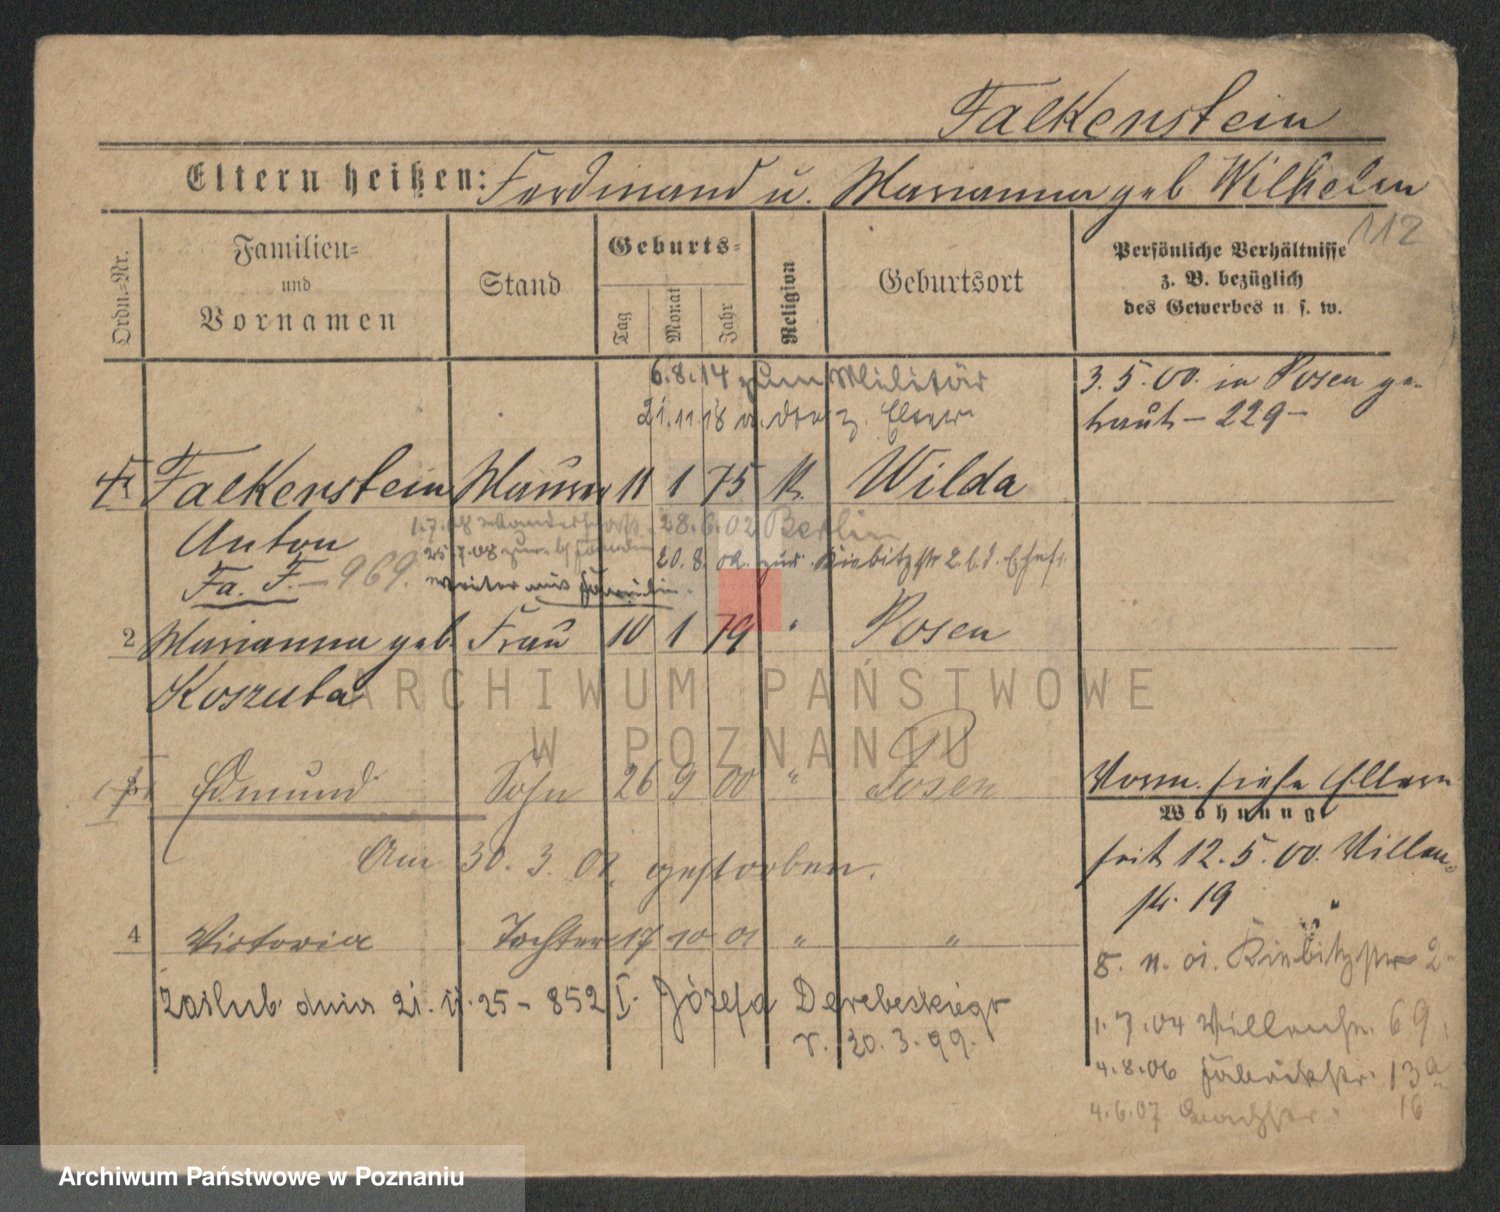 Falkenstein
Eltern heißen: Ferdinand u. Marianna geb. Wilhelm
112
Ordn.-Nr.
Familien-
und
Vornamen
Stand
Geburts-
Tag
Monat
Jahr
Religion
Geburtsort
Persönliche Verhältnisse
z. B. bezüglich
des Gewerbes u. s. w.
6.8.14 zum Militär
21.11.18 v. dort z. Eltern
3.5.00. in Posen ge-
traut – 229 –
Falkenstein Maurer 11 1 75 K. Wilda
Anton
1.7.08
28.6.02 Berlin
25.7.08
20.8.02 zur. Kiebitzstr 2. b. d. Ehefr.
Fa. F. – 969.
weiter mit Familie.
2 Marianna geb. Frau 10 1 79 " Posen
Koszuba
ARCHIWUM PAŃSTWOWE
W POZNANIU
Edmund Sohn 26 9 00 " Posen
Vorm. siehe Eltern
Wohnung
Am 30.3.02. gestorben.
seit 12.5.00. Villen-
str. 19
4 Victoria Tochter 17 10 01 " "
8. 11. 01. Kiebitzstr 2
Zaślub. dnia 21. 11. 25 – 852 I. Józefa Derebeskiego
r. 20. 3. 99.
1.7.04 Villenstr. 69.
4.8.06 Fabrikstr. 13a
4.6.07 16
Archiwum Państwowe w Poznaniu